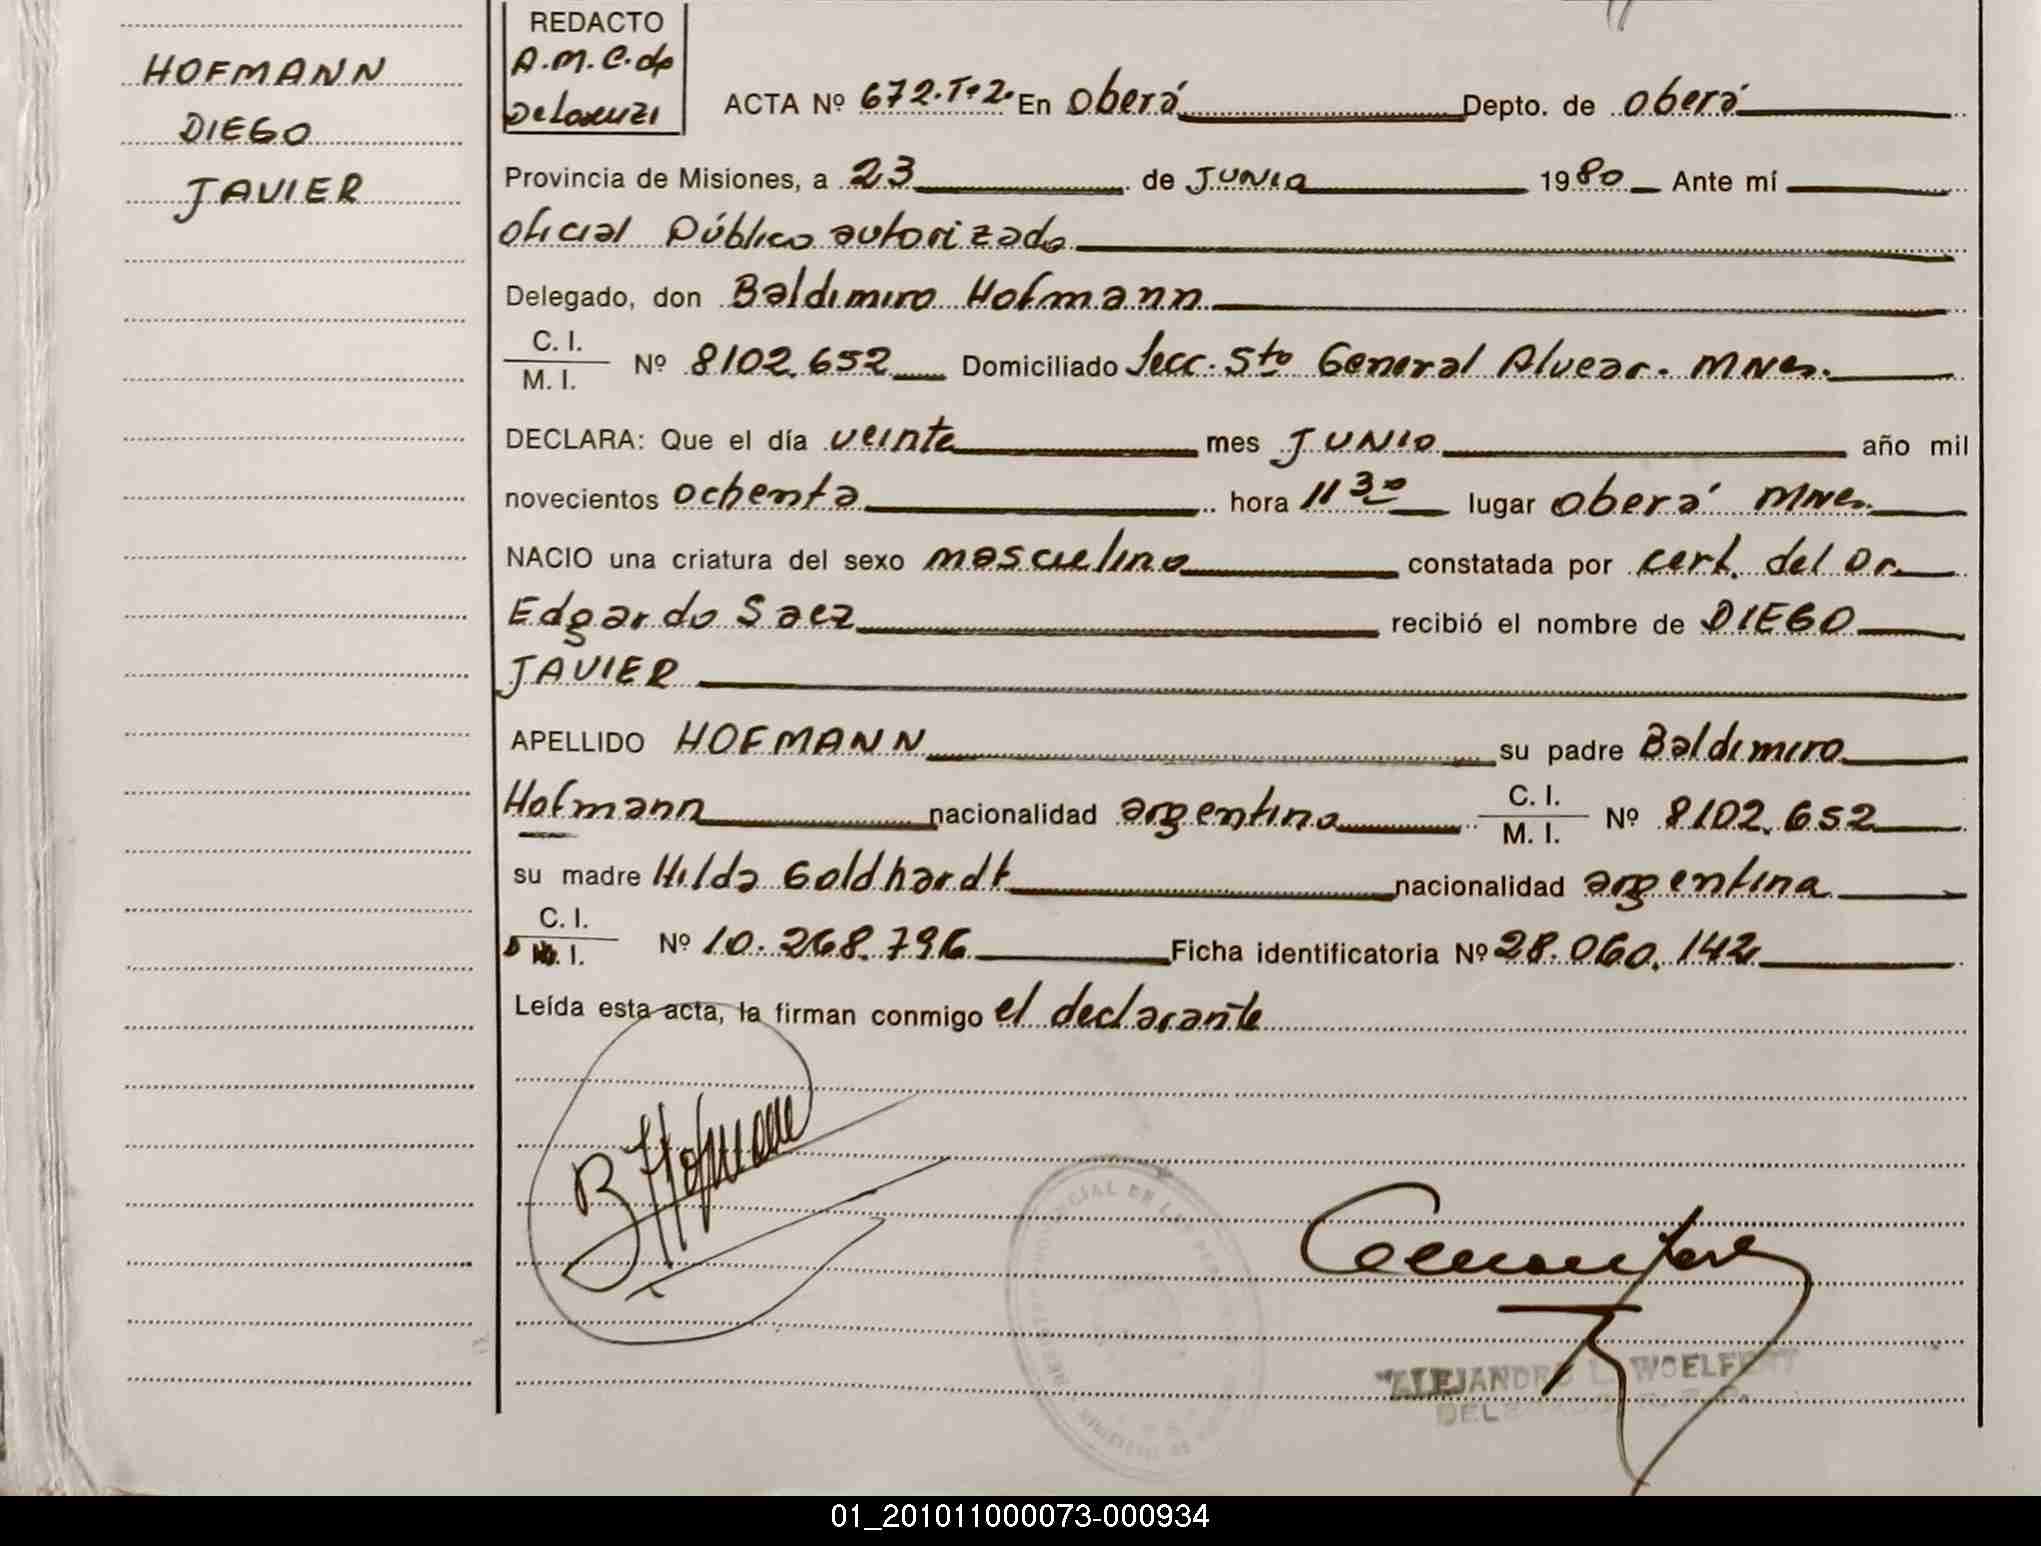 HOFMANN
DIEGO
JAVIER
REDACTO
A.M.C. de
De Lorenzi
ACTA Nº 672.Tº2. En Oberá Depto. de Oberá
Provincia de Misiones, a 23 de JUNIO 1980 Ante mí
Oficial Público autorizado
Delegado, don Baldimiro Hofmann
C. I.
M. I. Nº 8102.652 Domiciliado Secc. 5ta General Alvear. MNes.
DECLARA: Que el día veinte mes JUNIO año mil
novecientos ochenta hora 11 30 lugar Oberá MNes.
NACIO una criatura del sexo masculino constatada por cert. del Dr.
Edgardo Saez recibió el nombre de DIEGO
JAVIER
APELLIDO HOFMANN su padre Baldimiro
Hofmann nacionalidad argentina C. I.
M. I. Nº 8102.652
su madre Hilda Goldhardt nacionalidad argentina
C. I.
D N. I. Nº 10.268.796 Ficha identificatoria Nº 28.060.142
Leída esta acta, la firman conmigo el declarante
B Hofmann
PROVINCIAL DE LAS PERSONAS
ALEJANDRO L. WOELFERT
01_201011000073-000934